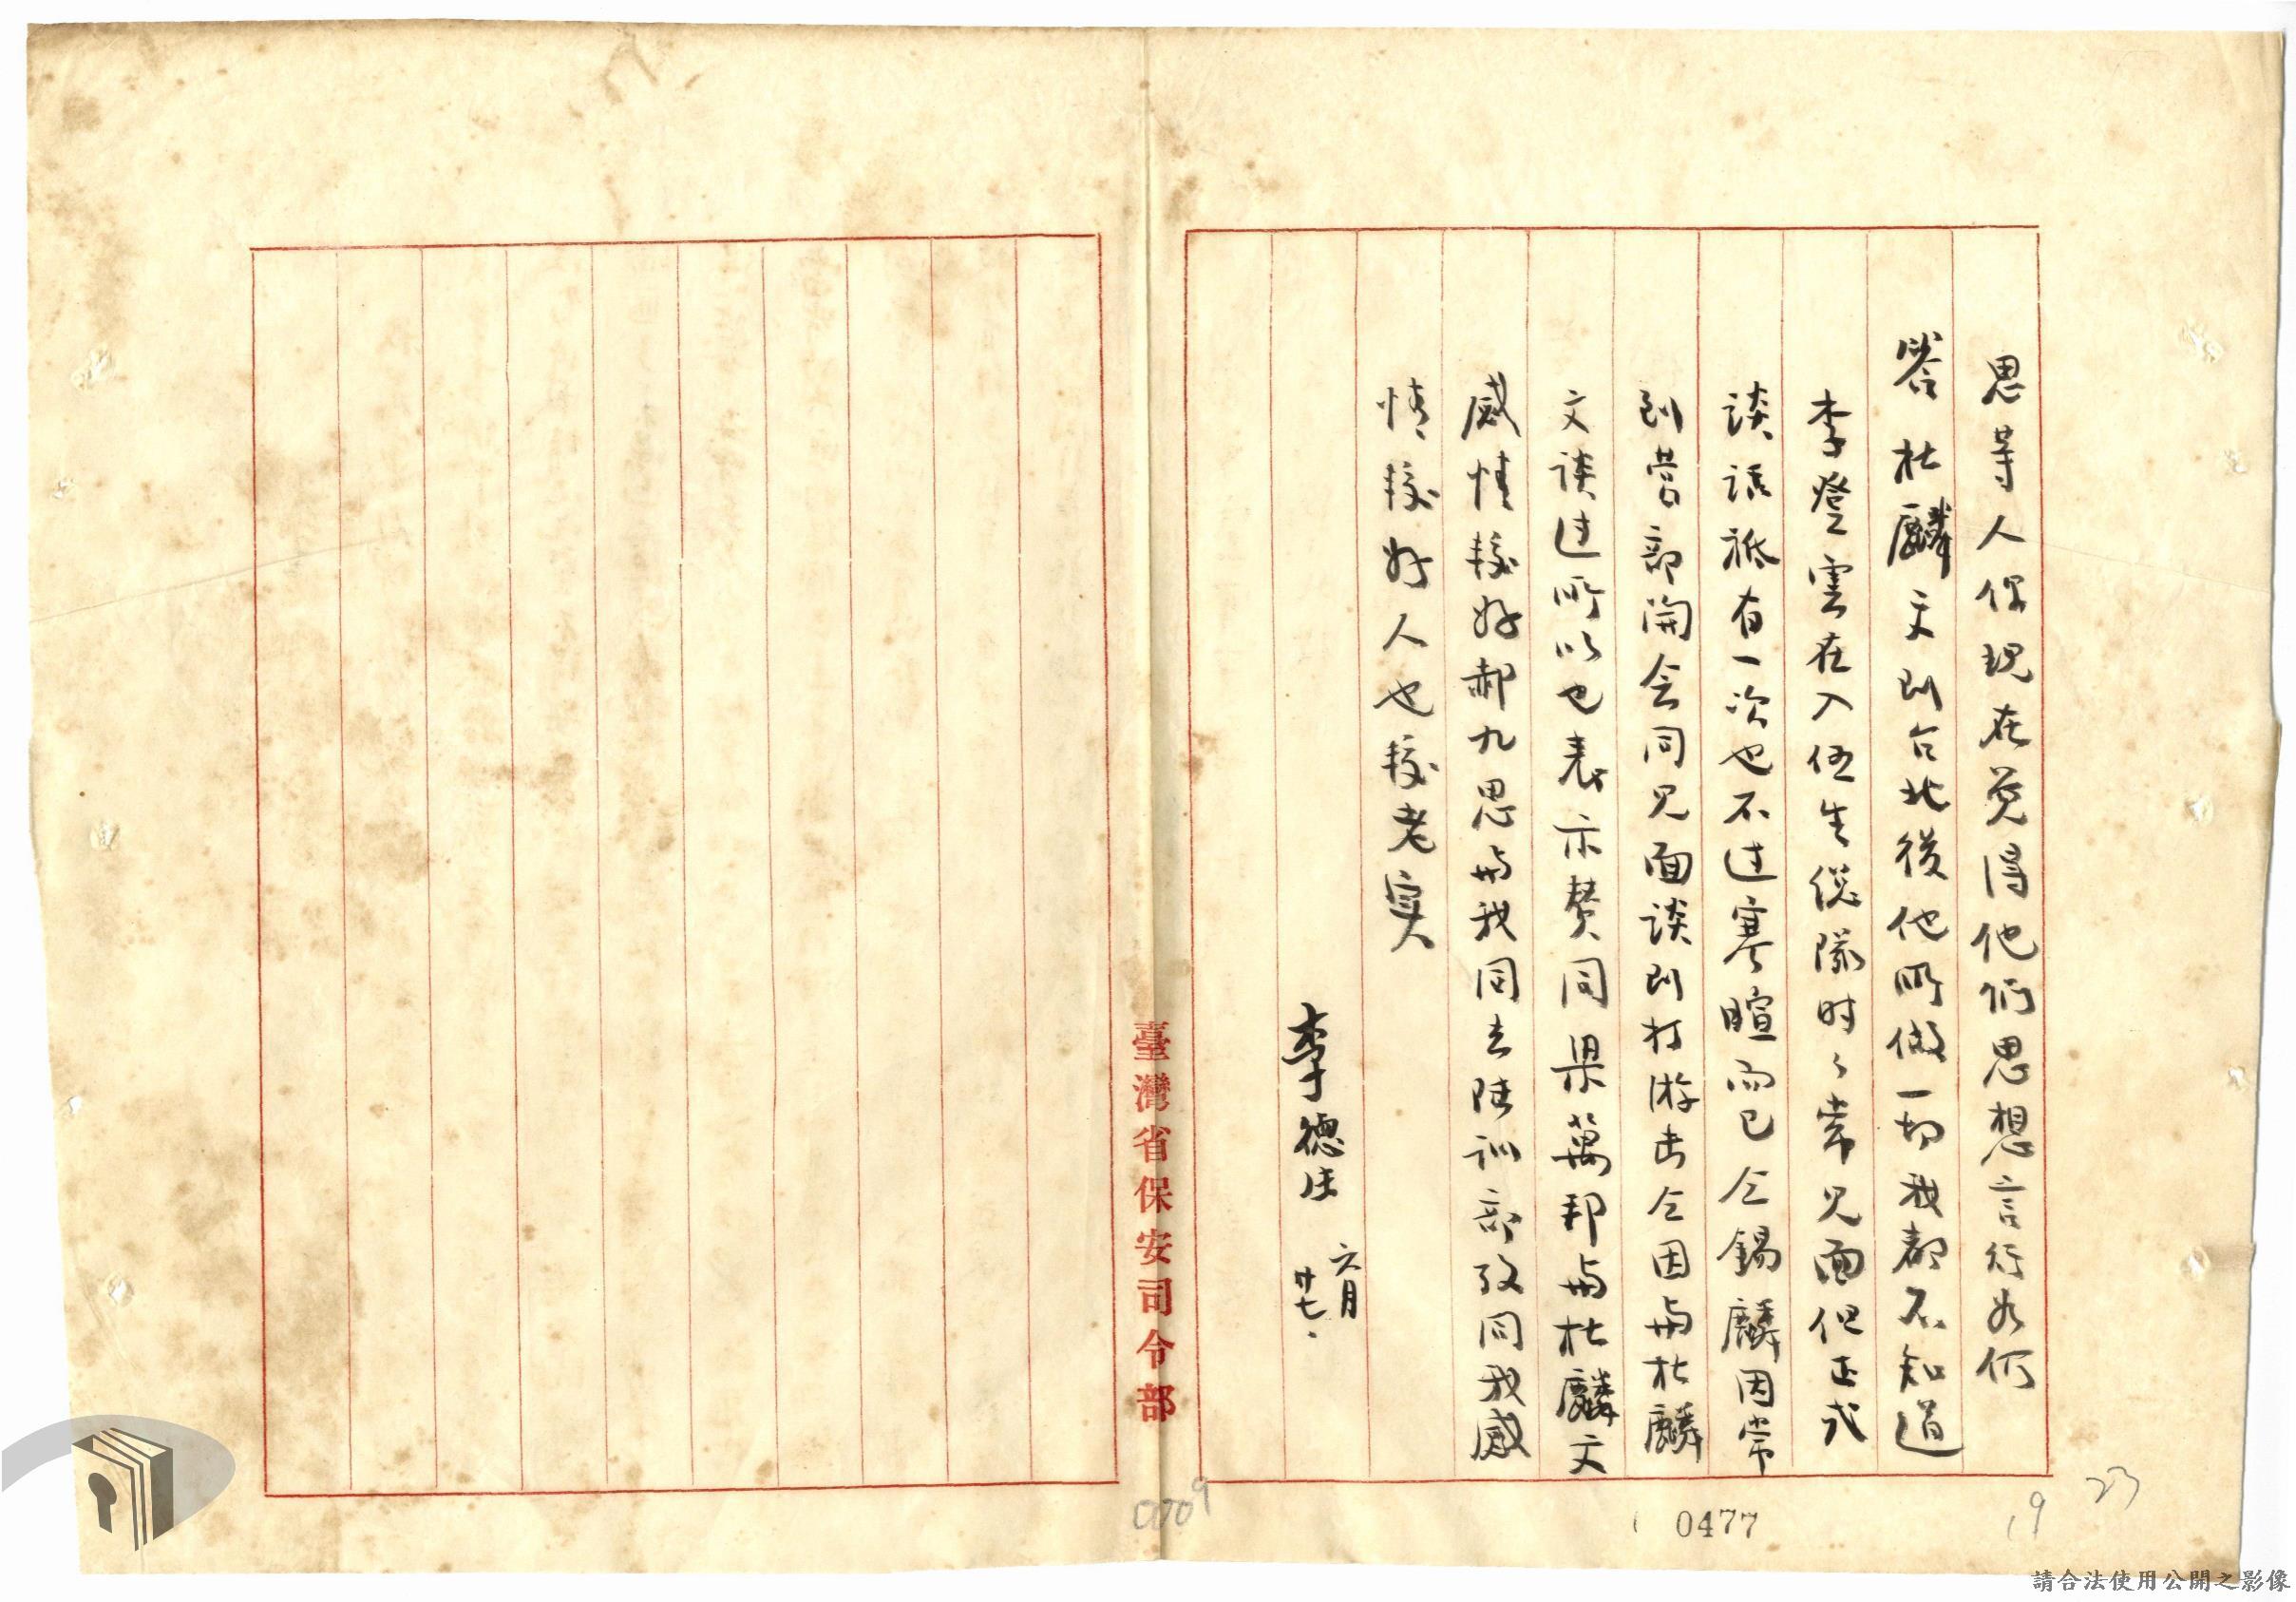 思等人你現在覺得他們思想言行如何
答 杜麟文到台北後他所做一切我都不知道
李登雲在入伍生總隊时々常見面但正式
談話祗有一次也不过寒暄而已仝錫麟因常
到營部開会同見面談到打游击仝因与杜麟
文談过所以也表示赞同梁萬邦与杜麟文
感情較好郝九思与我同去陆训部故同我感
情較好人也較老实
李德生 六月廿七.
臺灣省保安司令部
0477
19
23
請合法使用公開之影像